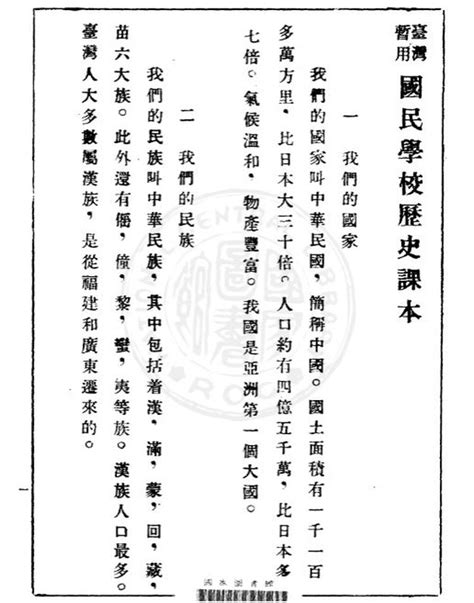 臺灣暫用 國民學校歷史課本
一 我們的國家
我們的國家叫中華民國，簡稱中國。國土面積有一千一百
多萬方里，比日本大三十倍。人口約有四億五千萬，比日本多
七倍。氣候溫和，物產豐富。我國是亞洲第一個大國。
二 我們的民族
我們的民族叫中華民族，其中包括着漢，滿，蒙，回，藏，
苗六大族。此外還有僑，僮，黎，蠻，夷等族。漢族人口最多。
臺灣人大多數屬漢族，是從福建和廣東遷來的。
一